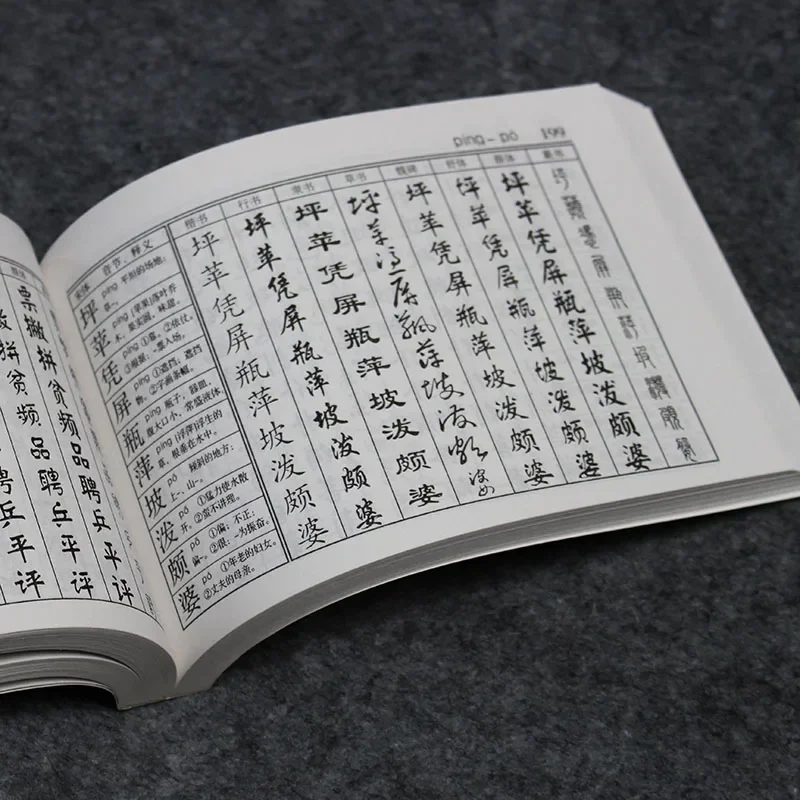 票撇拼贫频品聘乒平评
píng－pō 199
宋体 音节、释义 楷书 行书 隶书 草书 魏碑 舒体 颜体 篆书
坪 píng 平坦的场地：
草～。
苹 píng (苹果)落叶乔
木，果实圆，味甜。
凭 píng ①靠。②依仗。
③根据：～票入场。
屏 píng ①遮挡，遮挡
物。②字画条幅。
瓶 píng 瓶子，器皿，
腹大口小，常盛液体。
萍 píng (浮萍)浮生的
草，根垂在水中。
坡 pō 倾斜的地方：
上～、山～。
泼 pō ①猛力使水散
开。②蛮不讲理。
颇 pō ①偏；不正：
偏～。②很：～为振奋。
婆 pó ①年老的妇女。
②丈夫的母亲。
坪苹凭屏瓶萍坡泼颇婆
坪苹凭屏瓶萍坡泼颇婆
坪苹凭屏瓶萍坡泼颇婆
坪苹凭屏瓶萍坡泼颇婆
坪苹凭屏瓶萍坡泼颇婆
坪苹凭屏瓶萍坡泼颇婆
坪苹凭屏瓶萍坡泼颇婆